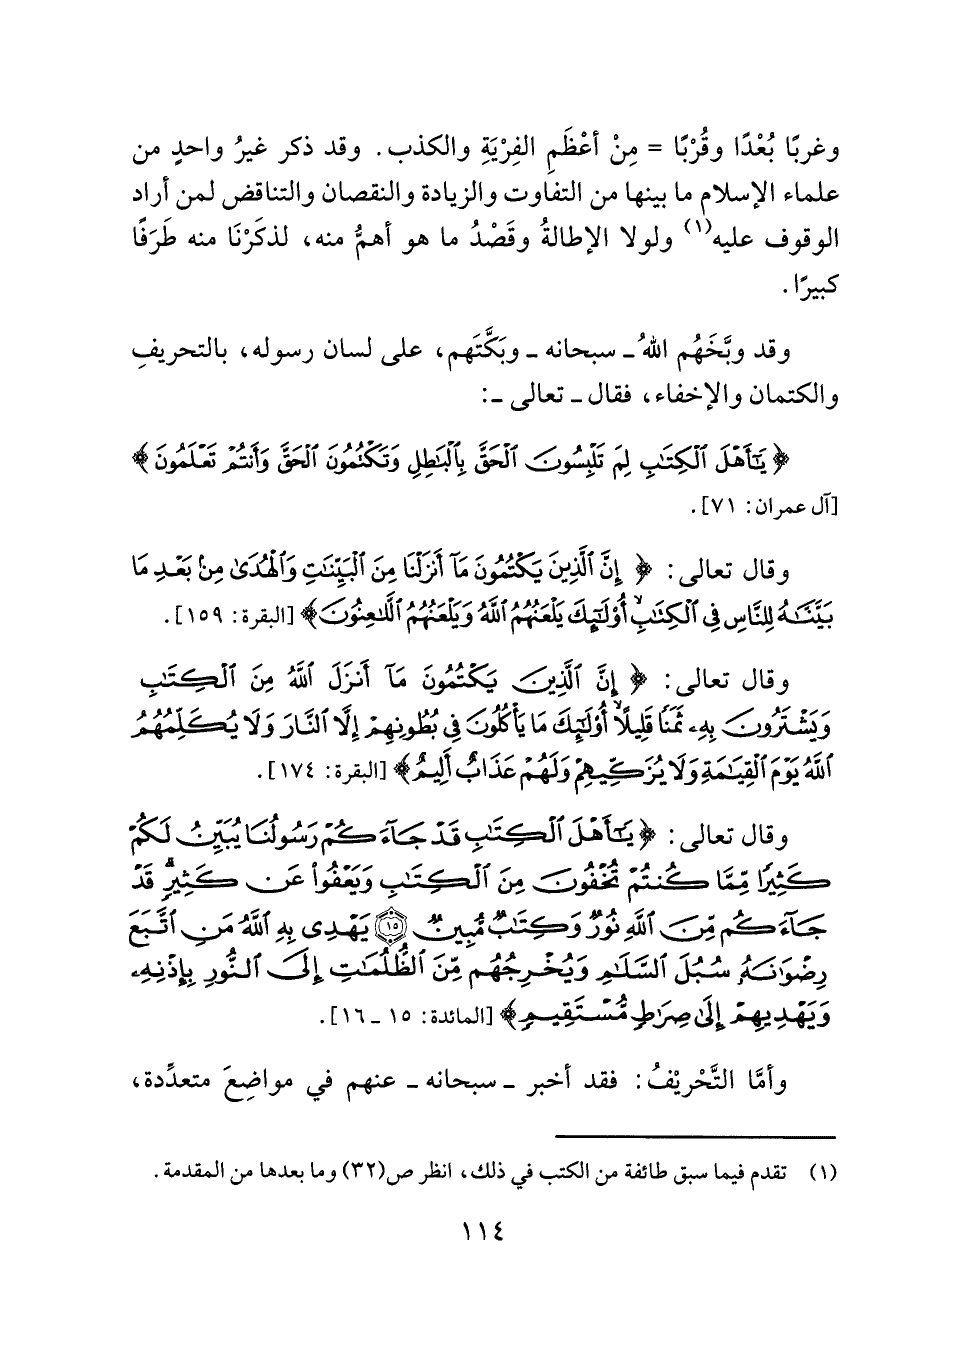 وغربًا بُعْدًا وقُرْبًا = مِنْ أعْظَمِ الفِرْيَةِ والكذب. وقد ذكر غيرُ واحدٍ من
علماء الإسلام ما بينها من التفاوت والزيادة والنقصان والتناقض لمن أراد
الوقوف عليه(١) ولولا الإطالةُ وقَصْدُ ما هو أهمُّ منه، لذكَرْنَا منه طَرَفًا
كبيرًا.
وقد وبَّخَهُم اللهُ ـ سبحانه ـ وبَكَّتَهم، على لسان رسوله، بالتحريفِ
والكتمان والإخفاء، فقال ـ تعالى ـ:
﴿ يَٰٓأَهْلَ ٱلْكِتَٰبِ لِمَ تَلْبِسُونَ ٱلْحَقَّ بِٱلْبَٰطِلِ وَتَكْتُمُونَ ٱلْحَقَّ وَأَنتُمْ تَعْلَمُونَ ﴾
[آل عمران: ٧١].
وقال تعالى: ﴿ إِنَّ ٱلَّذِينَ يَكْتُمُونَ مَآ أَنزَلْنَا مِنَ ٱلْبَيِّنَٰتِ وَٱلْهُدَىٰ مِنۢ بَعْدِ مَا
بَيَّنَّٰهُ لِلنَّاسِ فِى ٱلْكِتَٰبِ ۙ أُو۟لَٰٓئِكَ يَلْعَنُهُمُ ٱللَّهُ وَيَلْعَنُهُمُ ٱللَّٰعِنُونَ ﴾ [البقرة: ١٥٩].
وقال تعالى: ﴿ إِنَّ ٱلَّذِينَ يَكْتُمُونَ مَآ أَنزَلَ ٱللَّهُ مِنَ ٱلْكِتَٰبِ
وَيَشْتَرُونَ بِهِۦ ثَمَنًا قَلِيلًا ۙ أُو۟لَٰٓئِكَ مَا يَأْكُلُونَ فِى بُطُونِهِمْ إِلَّا ٱلنَّارَ وَلَا يُكَلِّمُهُمُ
ٱللَّهُ يَوْمَ ٱلْقِيَٰمَةِ وَلَا يُزَكِّيهِمْ وَلَهُمْ عَذَابٌ أَلِيمٌ ﴾ [البقرة: ١٧٤].
وقال تعالى: ﴿ يَٰٓأَهْلَ ٱلْكِتَٰبِ قَدْ جَآءَكُمْ رَسُولُنَا يُبَيِّنُ لَكُمْ
كَثِيرًا مِّمَّا كُنتُمْ تُخْفُونَ مِنَ ٱلْكِتَٰبِ وَيَعْفُوا۟ عَن كَثِيرٍ ۚ قَدْ
جَآءَكُم مِّنَ ٱللَّهِ نُورٌ وَكِتَٰبٌ مُّبِينٌ ۝١٥ يَهْدِى بِهِ ٱللَّهُ مَنِ ٱتَّبَعَ
رِضْوَٰنَهُۥ سُبُلَ ٱلسَّلَٰمِ وَيُخْرِجُهُم مِّنَ ٱلظُّلُمَٰتِ إِلَى ٱلنُّورِ بِإِذْنِهِۦ
وَيَهْدِيهِمْ إِلَىٰ صِرَٰطٍ مُّسْتَقِيمٍ ﴾ [المائدة: ١٥ ـ ١٦].
وأمَّا التَّحْرِيْفُ: فقد أخبر ـ سبحانه ـ عنهم في مواضِعَ متعدِّدة،
(١) تقدم فيما سبق طائفة من الكتب في ذلك، انظر ص(٣٢) وما بعدها من المقدمة.
١١٤